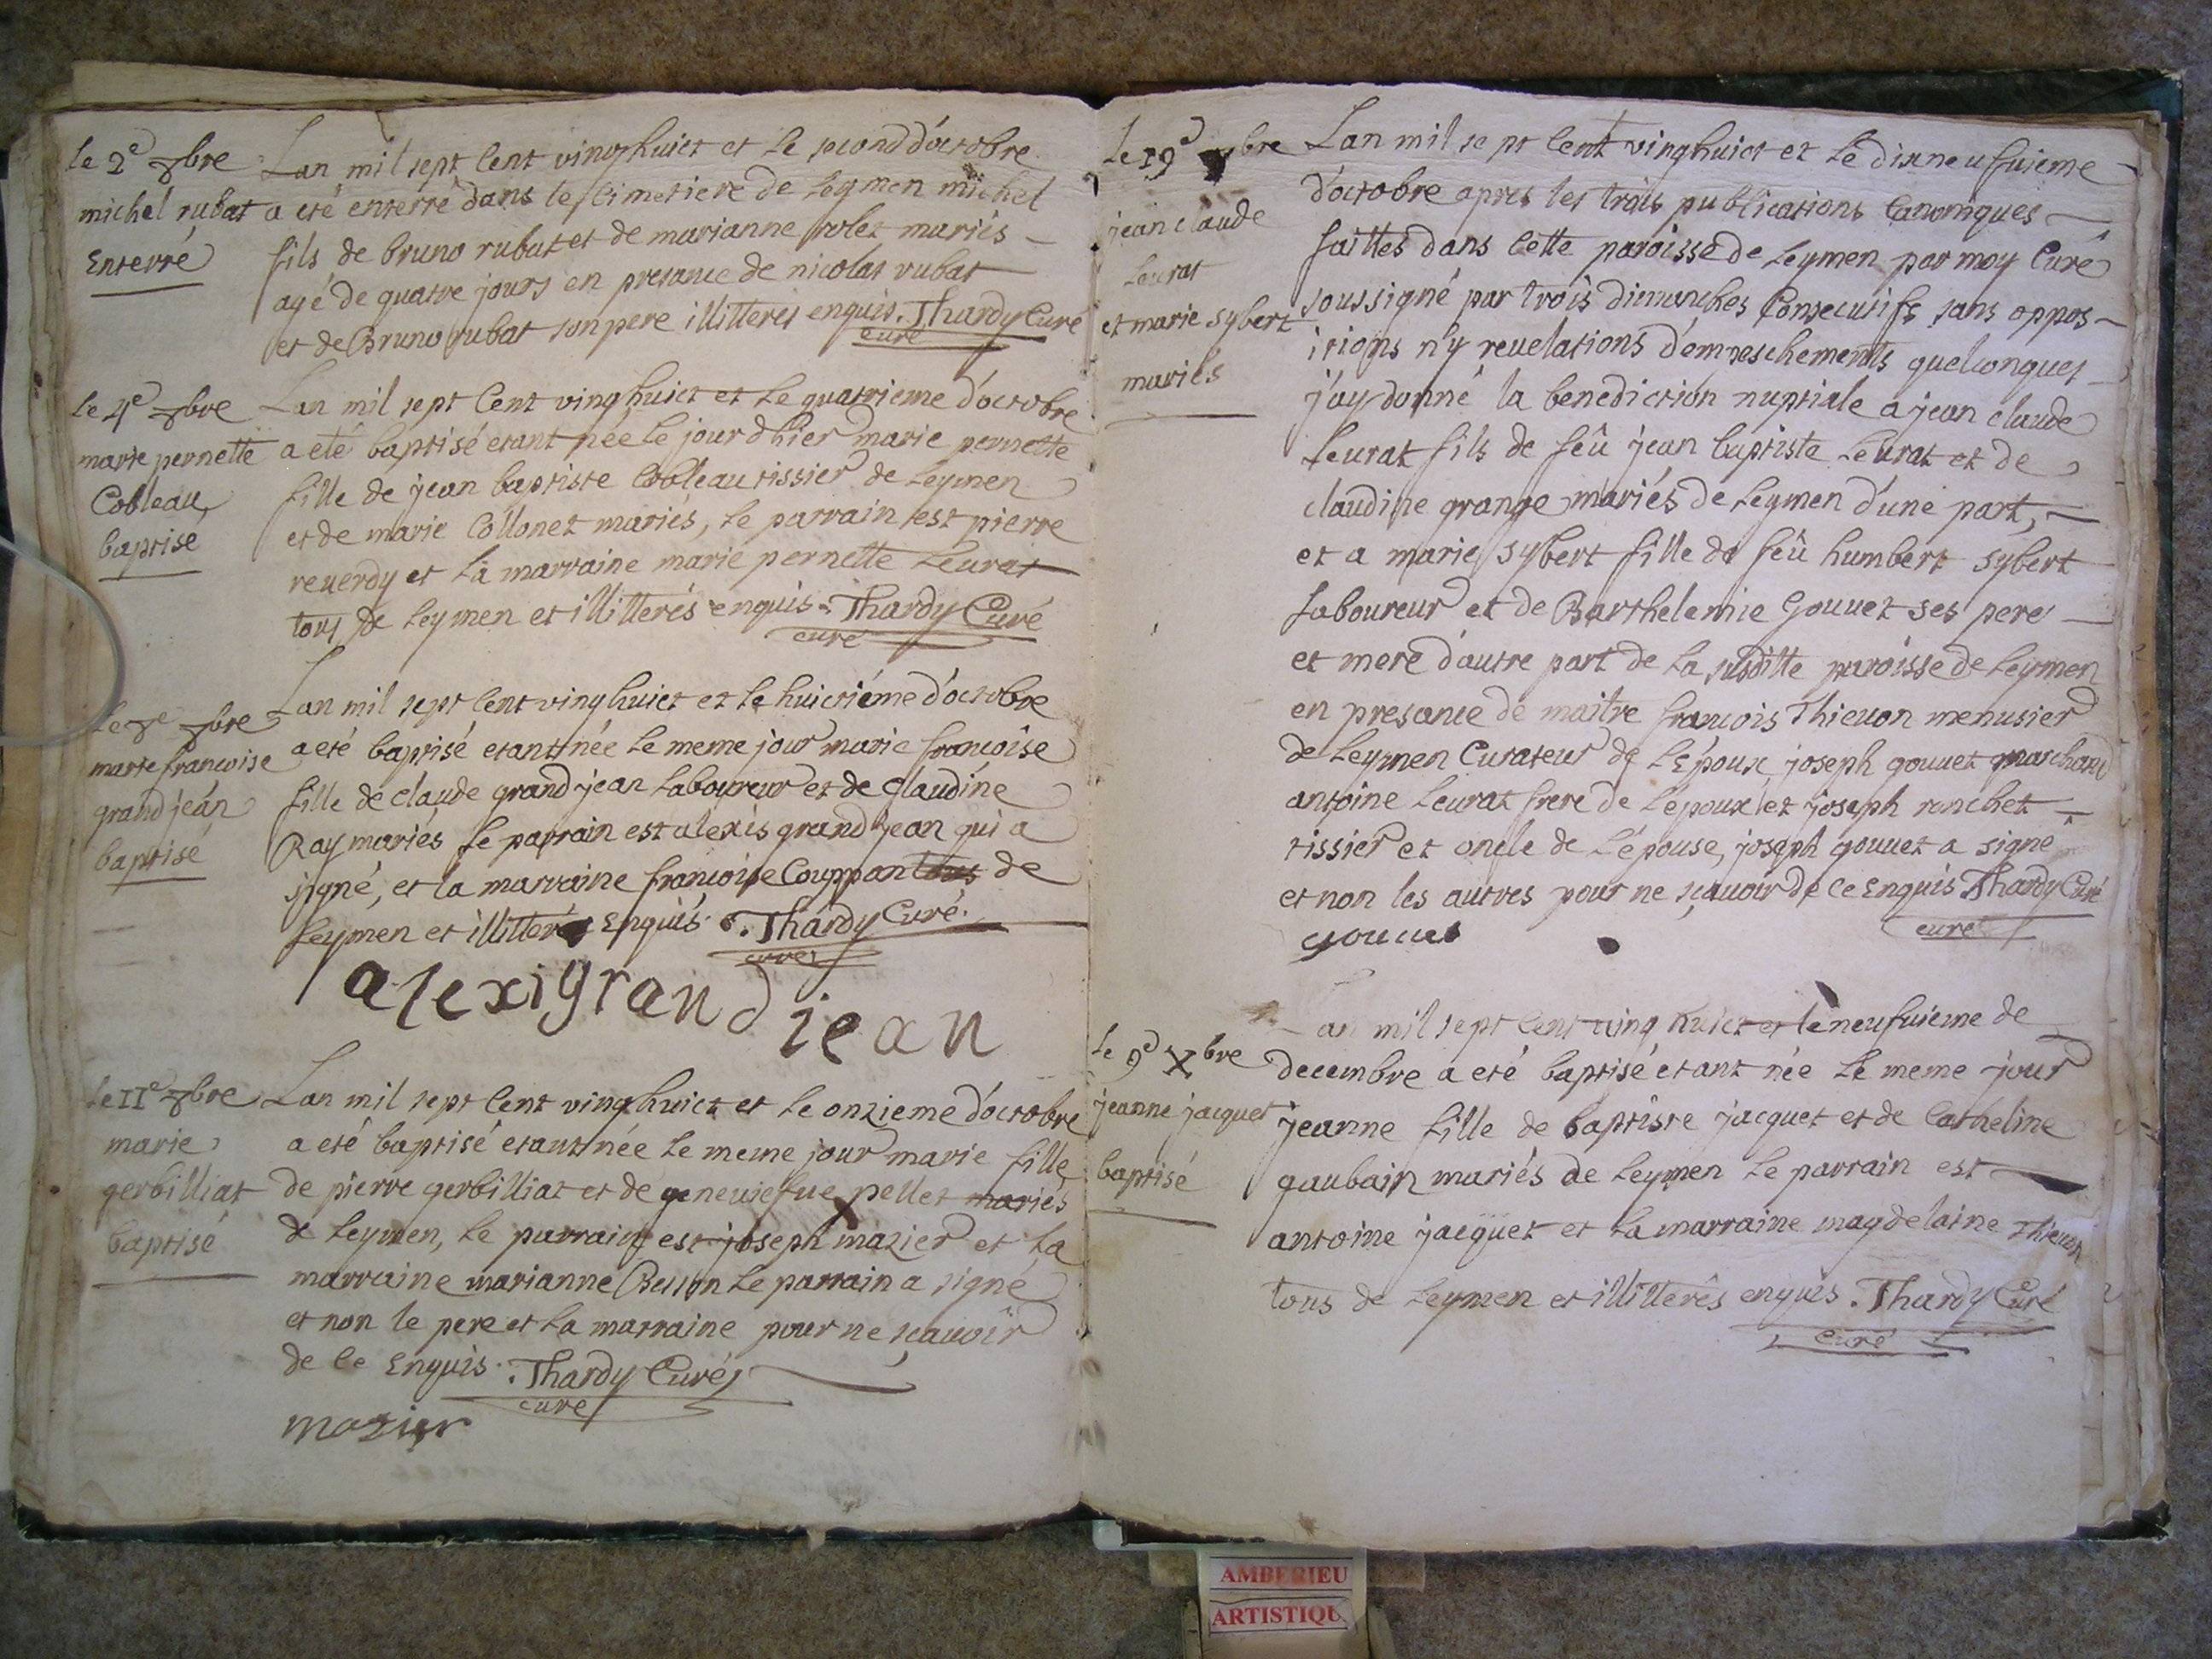 le 2e 8bre
michel rubat
Enterré
Lan mil sept Cent vinghuict et le second d'octobre
a eté enterré dans le Cimetiere de Leymen michel
fils de bruno rubat et de marianne rolet mariés
agé de quatre jours en presance de nicolas rubat
et de Bruno rubat son pere illitterés enquis. Thardy Curé
curé
le 4e 8bre
marie pernette
Cobleau
baptise
Lan mil sept Cent vinghuict et le quatrieme d'octobre
a eté baptisé etant née le jour d'hier marie pernette
fille de jean baptiste Cobleau tissier de Leymen
et de marie Collonet mariés, le parrain est pierre
reuerdy et la marraine marie pernette Leurat
tous de Leymen et illitterés enquis. Thardy Curé
curé
le 8e 8bre
marie francoise
grand jean
baptisé
Lan mil sept Cent vinghuict et le huictiéme d'octobre
a eté baptisé etant née le meme jour marie francoise
fille de claude grand jean Laboureur et de Claudine
Ray mariés le parrain est alexis grand jean qui a
signé, et la marraine francoise Couppon tous de
Leymen et illitteré Enquis. Thardy Curé.
curé
alexigrandjean
le 11e 8bre
marie
gerbilliat
baptisé
Lan mil sept Cent vinghuict et le onzieme d'octobre
a eté baptisé etant née le meme jour marie fille
de pierre gerbilliat et de geneuiefue pellet mariés
de Leymen, le parrain est joseph mazier et la
marraine marianne Besson le parrain a signé
et non le pere et la marraine pour ne sçauoir
de ce Enquis. Thardy Curé
curé
mazier
le 19e bre
jean claude
Leurat
et marie sybert
mariés
Lan mil sept Cent vinghuict et le dixneufuieme
d'octobre apres les trois publications Canoniques
faittes dans Cette paroisse de Leymen par moy Curé
soussigné par trois dimanches Consecutifs sans oppos-
itions n'y reuelations d'empeschements quelconques
j'ay donné la benediction nuptiale a jean claude
Leurat fils de feû jean baptiste Leurat et de
claudine grange mariés de Leymen d'une part,
et a marie sybert fille de feû humbert sybert
Laboureur et de Barthelemie Gouuet ses pere
et mere d'autre part de la susditte paroisse de Leymen
en presance de maitre francois Thieuon menusier
de Leymen Curateur de L'Epoux joseph gouuet marchand
antoine Leurat frere de L'époux et joseph ronchet
tissier et oncle de L'épouse, joseph gouuet a signé
et non les autres pour ne sçauoir de ce Enquis Thardy Curé
curé
gouuet
le 9e Xbre
jeanne jacquet
baptisé
Lan mil sept Cent vinq huict et le neufuieme de
decembre a eté baptisé etant née le meme jour
jeanne fille de baptiste jacquet et de Catheline
gaubain mariés de Leymen le parrain est
antoine jacquet et la marraine magdelaine Thieuon
tous de Leymen et illitterés enquis. Thardy Curé
Curé
AMBERIEU
ARTISTIQU